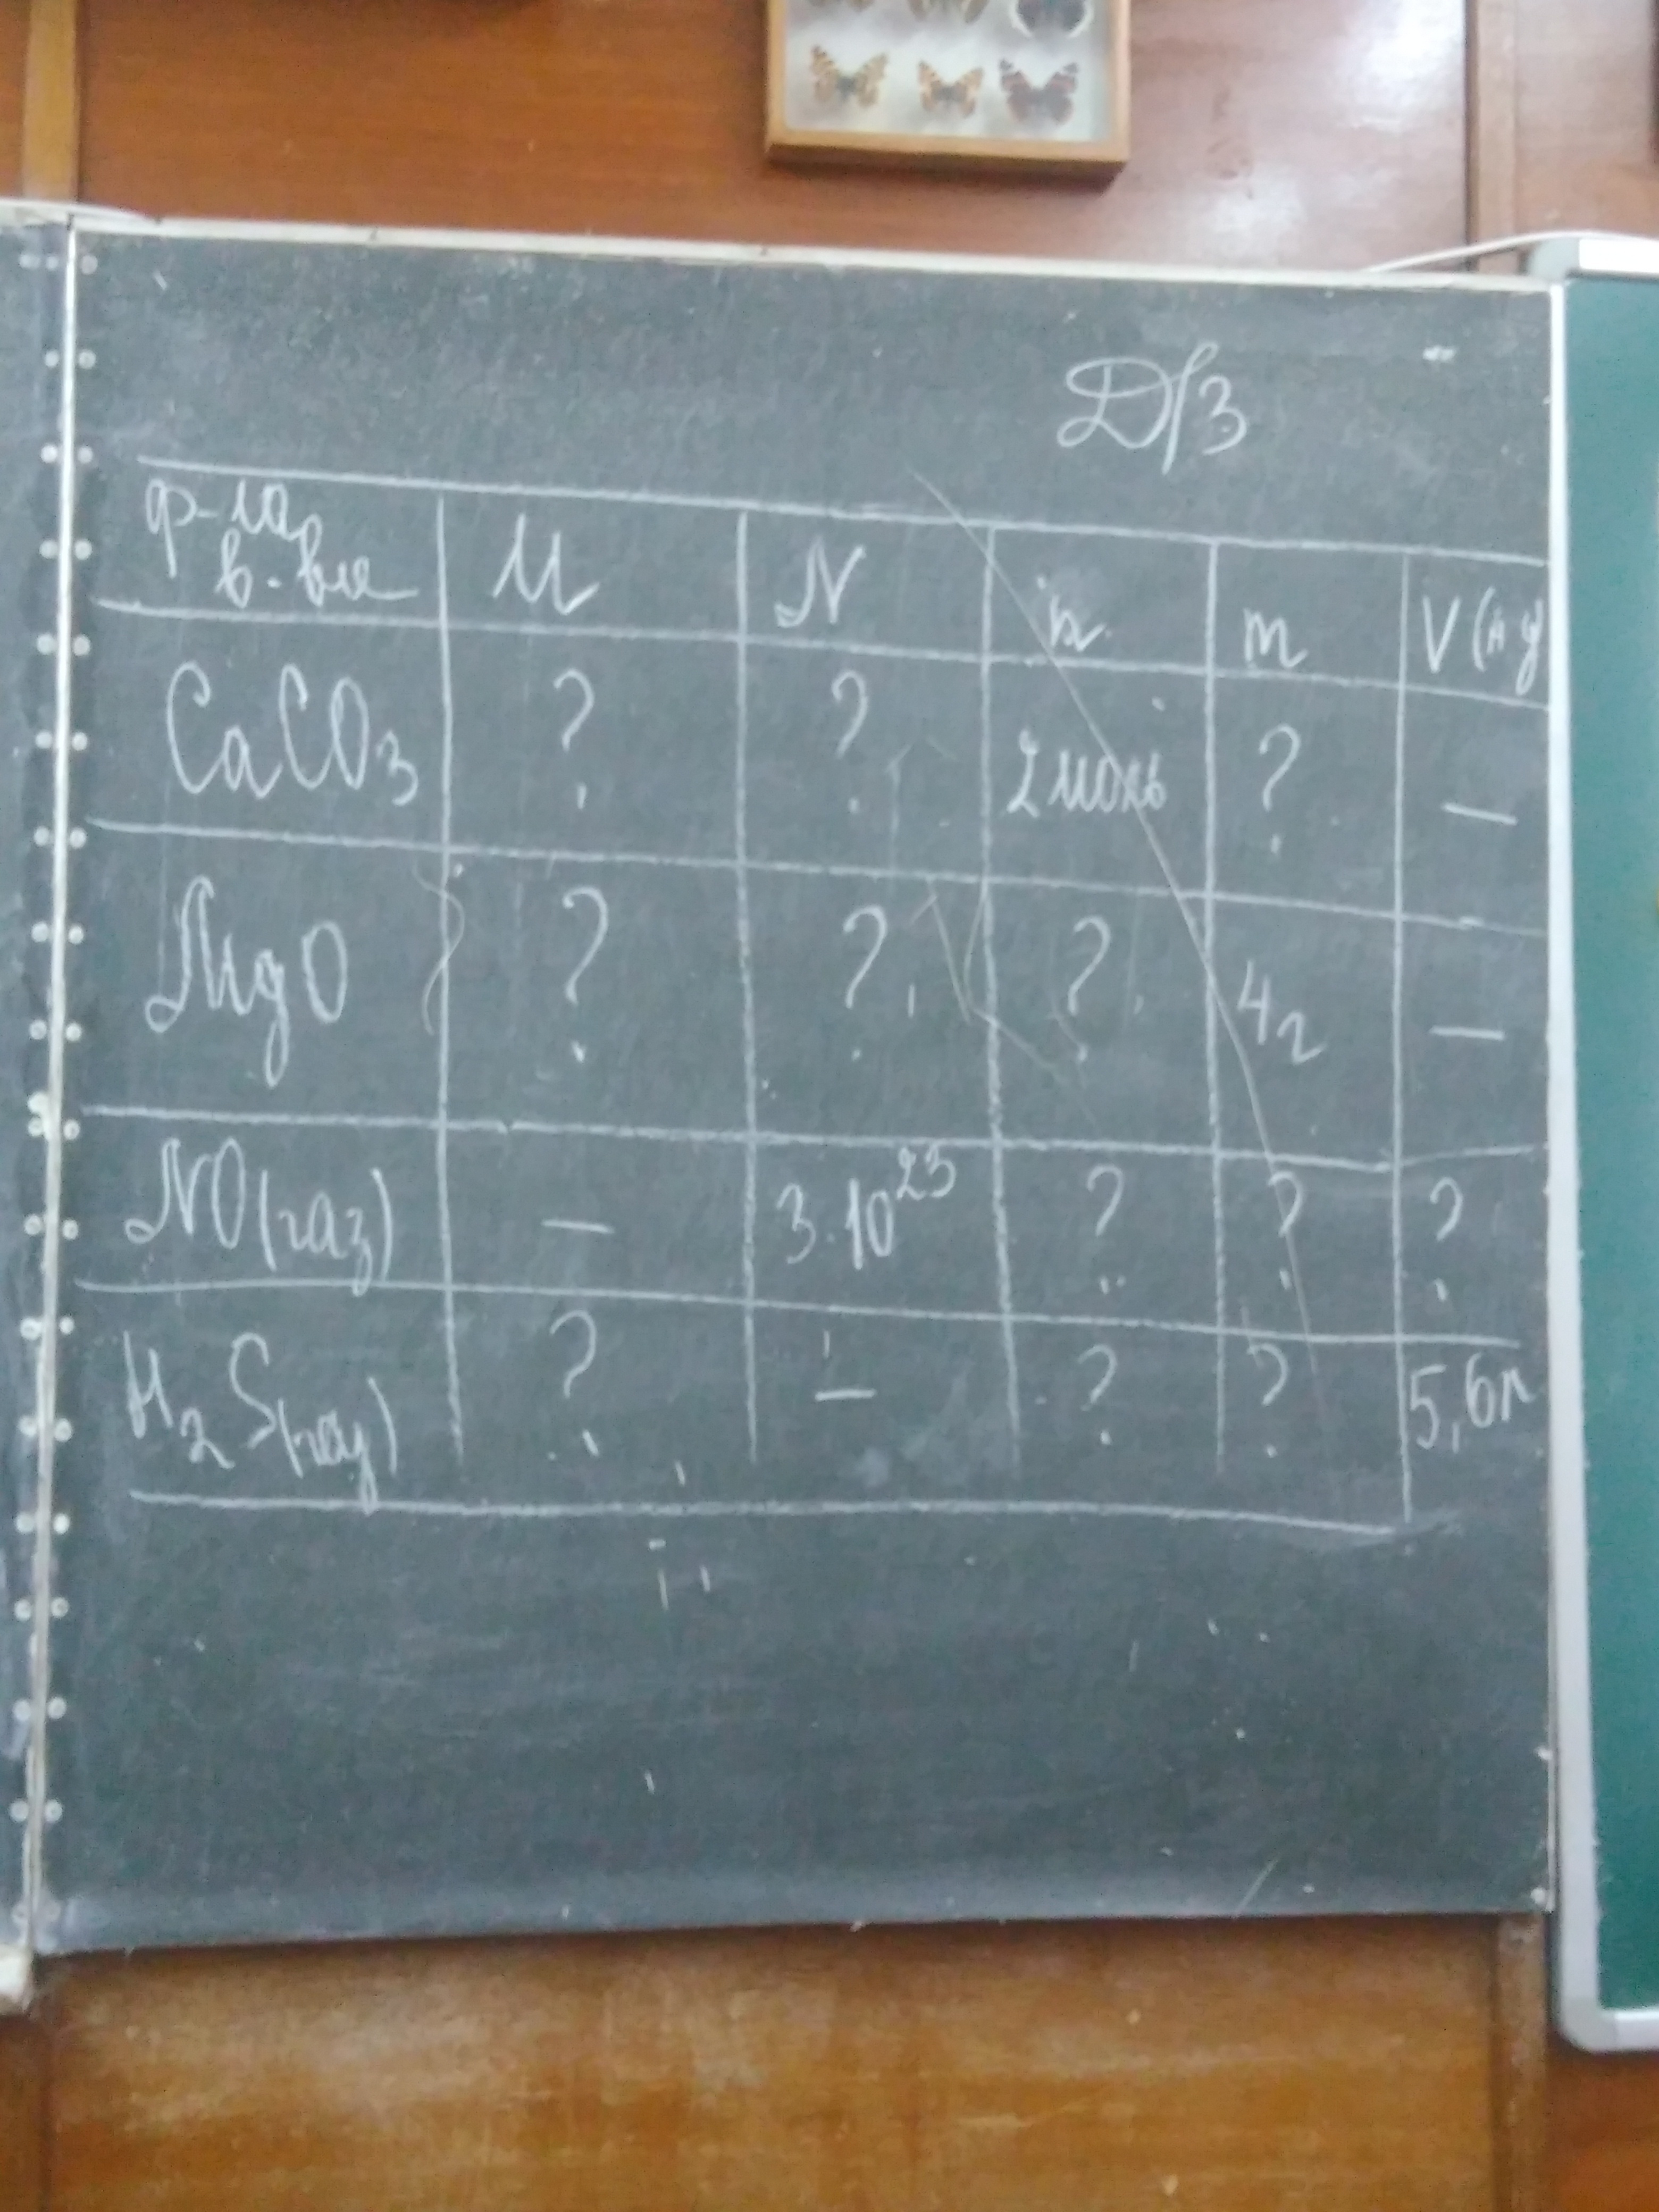 Д/З
ф-ла
в-ва M N n m V (н у)
CaCO3 ? ? 2 моль ? —
MgO ? ? ? 4 г —
NO (газ) — 3·10^23 ? ? ?
H2S (газ) ? — ? ? 5,6 л